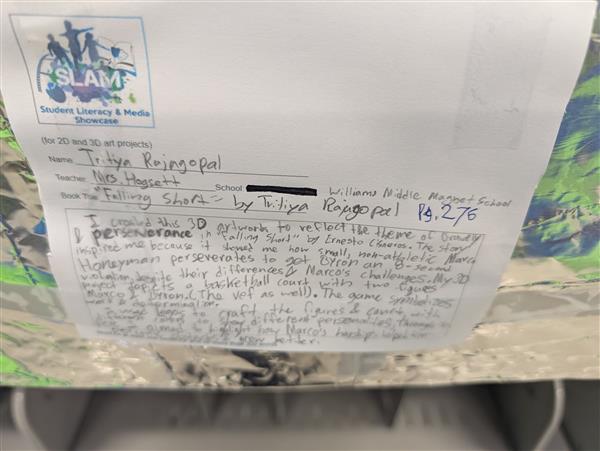 SLAM
Student Literacy & Media
Showcase
(for 2D and 3D art projects)
Name Tritiya Rajagopal
Teacher: Mrs. Hogsett School Williams Middle Magnet School
Book Title "Falling Short" by Tritiya Rajagopal Pg. 276
I created this 3D artwork to reflect the theme of
& perseverance in "Falling Short" by Ernesto Cisneros. The story
inspired me because it showed me how small, non-athletic Marco
Honeyman perseverates to get Byron an 8-second
violation despite their differences & Marco's challenges. My 3D
project depicts a basketball court with two figures
Marco & Byron. (The ref as well). The game symbolizes
& determination.
I used to craft the figures & court with
different personalities, through
aimed to highlight how Marco's hardships helped
grow better.